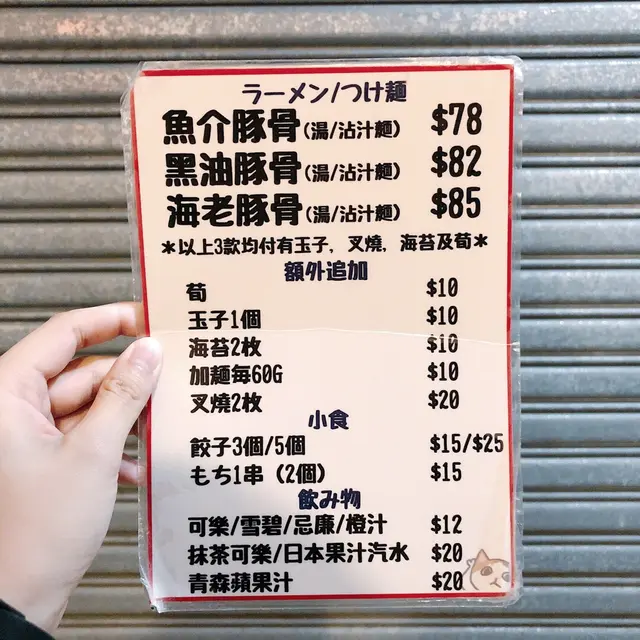 ラーメン/つけ麺
魚介豚骨(湯/沾汁麵) $78
黑油豚骨(湯/沾汁麵) $82
海老豚骨(湯/沾汁麵) $85
*以上3款均付有玉子, 叉燒, 海苔及荀*
額外追加
荀 $10
玉子1個 $10
海苔2枚 $10
加麵每60G $10
叉燒2枚 $20
小食
餃子3個/5個 $15/$25
もち1串 (2個) $15
飲み物
可樂/雪碧/忌廉/橙汁 $12
抹茶可樂/日本果汁汽水 $20
青森蘋果汁 $20